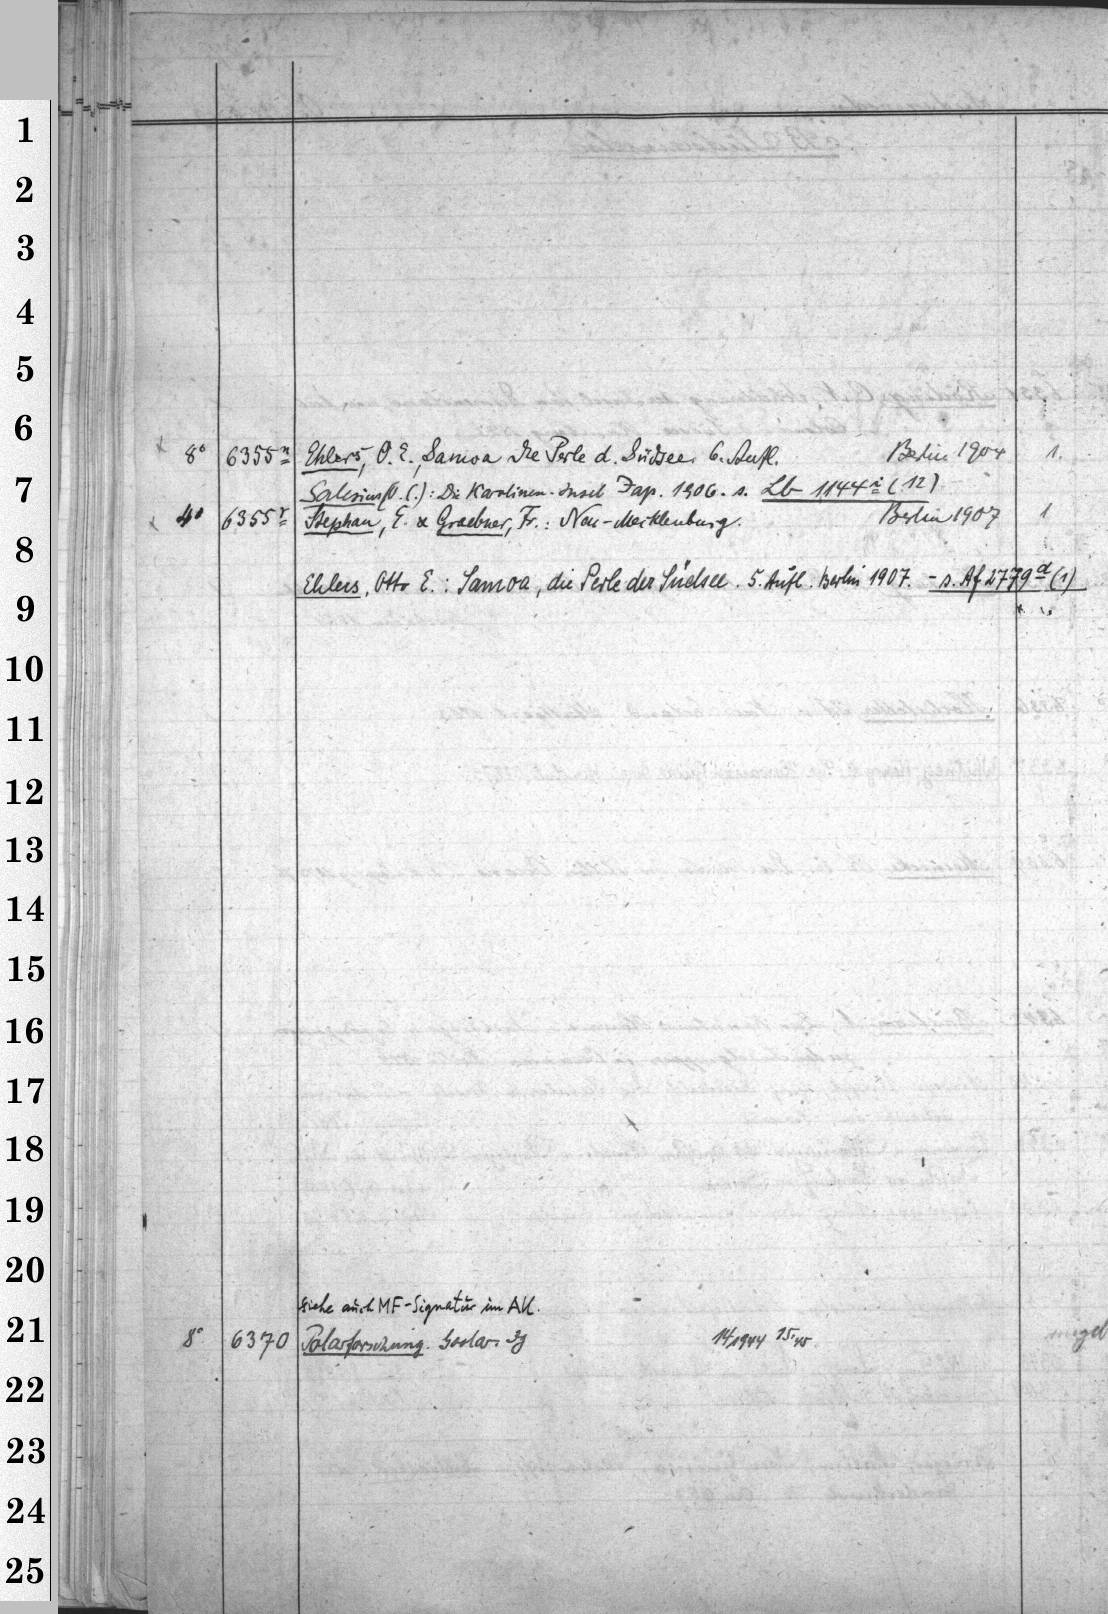 1
2
3
4
5
6
8° 6355n Ehlers, O. E., Samoa die Perle d. Südsee. 6. Aufl. Berlin 1904 1.
7
Salesius (P.): Die Karolinen-Insel Jap. 1906. s. Lb 1144i (12)
4° 6355r Stephan, E. & Graebner, Fr.: Neu-Mecklenburg. Berlin 1907 1
8
Ehlers, Otto E.: Samoa, die Perle der Südsee. 5. Aufl. Berlin 1907. - s. Af 2779d (1)
9
10
11
12
13
14
15
16
17
18
19
20
siehe auch MF-Signatur im AK.
21
8° 6370 Polarforschung. Goslar. Jg 14/1944 15/45
22
23
24
25